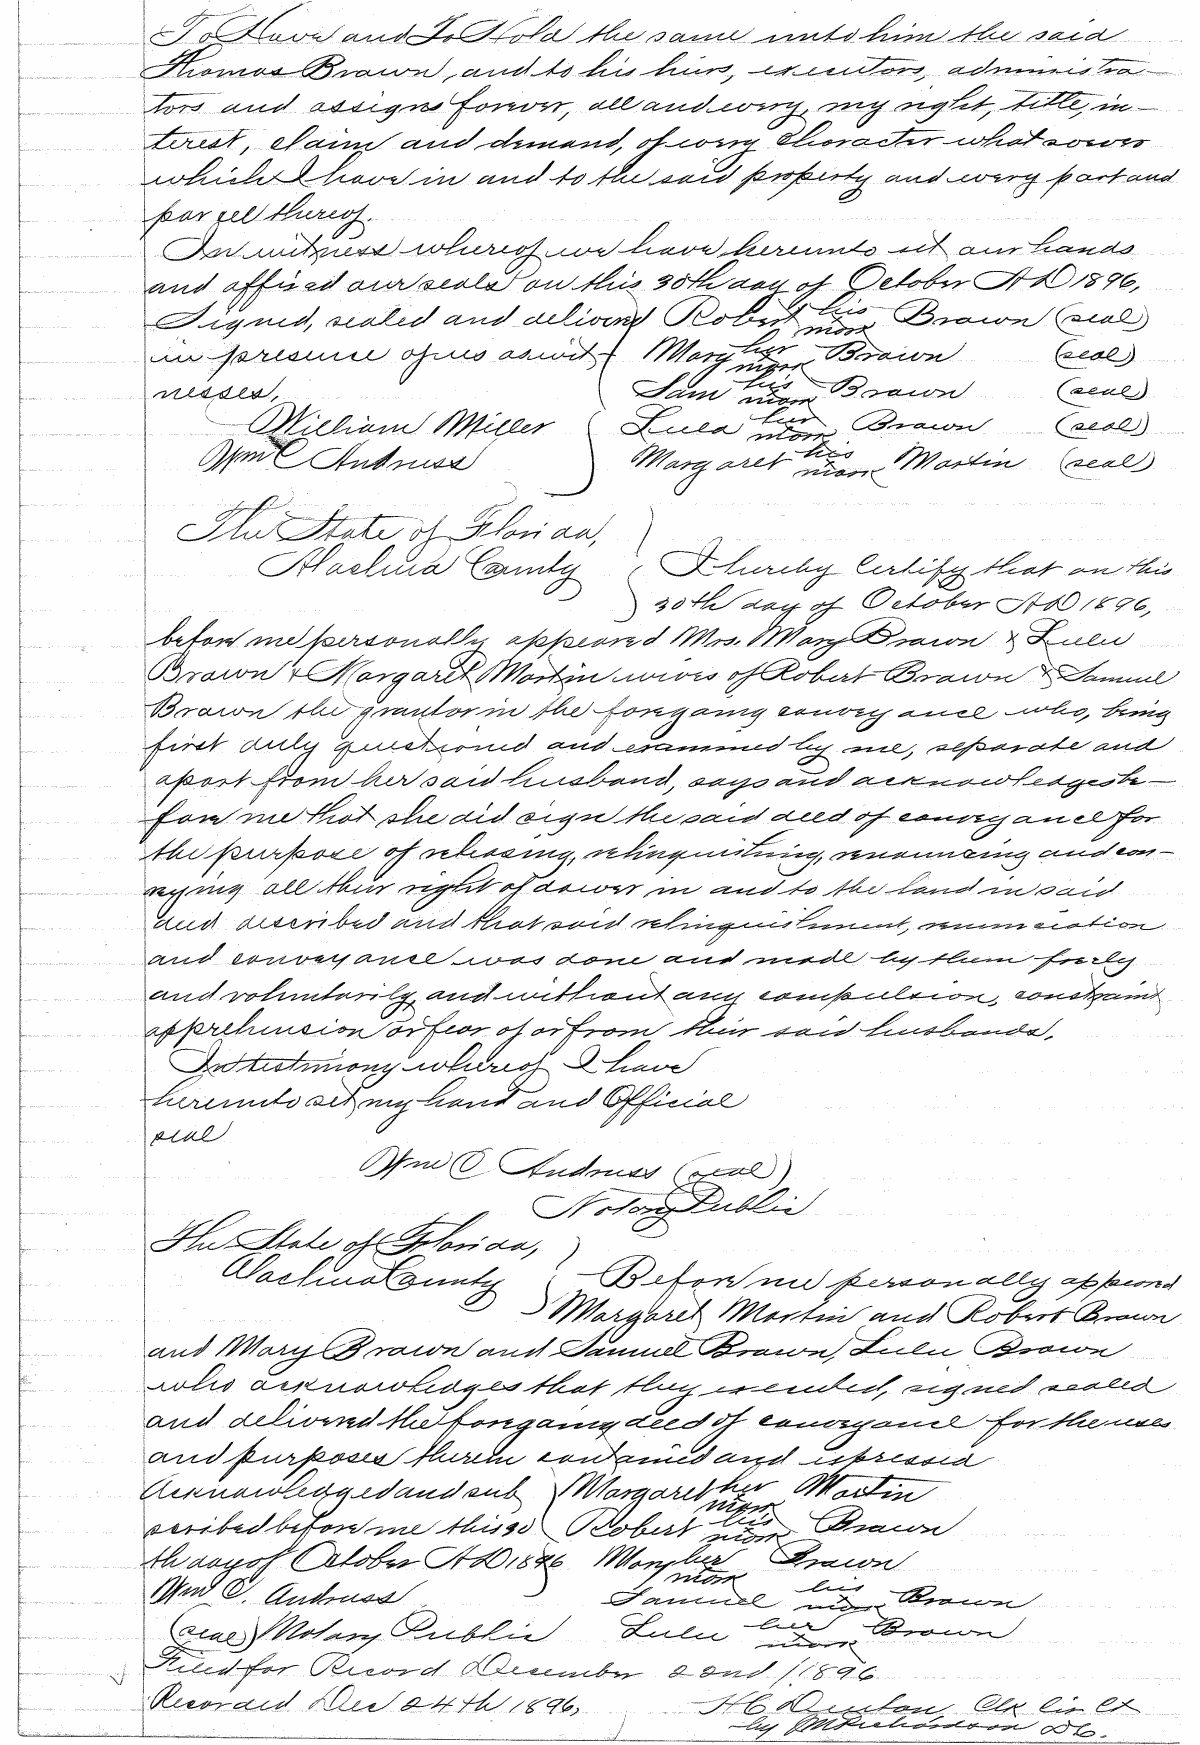 To Have and To Hold the same unto him the said
Thomas Brown, and to his hiers, executors, administra-
tors and assigns forever, all and every, my right, title, in-
terest, claim and demand, of every character what soever
which I have in and to the said property and every part and
parcel thereof.
In witness whereof we have hereunto set our hands
and affixed our seals on this 30th day of October AD 1896,
Signed, sealed and deliverd Robert his mark Brown (seal)
in presence of us as wit- Mary her mark Brown (seal)
nesses, Sam his mark Brown (seal)
William Miller Lula her mark Brown (seal)
Wm C Andruss Margaret his mark Martin (seal)
The State of Florida,
Alachua County I hereby Certify that on this
30th day of October AD 1896,
before me personally appeared Mrs. Mary Brown & Lulu
Brown & Margaret Martin wives of Robert Brown & Samuel
Brown the grantor in the foregoing conveyance who, being
first duly questioned and examined by me, separate and
apart from her said husband, says and acknowledges be-
fore me that she did sign the said deed of conveyance for
the purpose of releasing, relinquishing, renouncing and con-
veying all their right of dower in and to the land in said
deed described and that said relinquishment, renunciation
and conveyance was done and made by them freely
and voluntarily, and without any compulsion, constraint
apprehension or fear of or from their said husbands.
In testimony whereof I have
hereunto set my hand and Official
seal
Wm C Andruss (seal)
Notary Public
The State of Florida,
Alachua County Before me personally appeared
Margaret Martin and Robert Brown
and Mary Brown and Samuel Brown, Lulu Brown
who acknowledges that they executed, signed sealed
and delivered the foregoing deed of conveyance for the uses
and purposes therein contained and expressed
Acknowledged and sub Margaret her mark Martin
scribed before me this 30 Robert his mark Brown
th day of October AD 1896 Mary her mark Brown
Wm C. Andruss Samuel his mark Brown
(seal) Notary Public Lulu her mark Brown
Filed for Record December 22nd 1896
Recorded Dec 24th 1896, H C Denton, Clk Cir Ct
by Richardson DC.